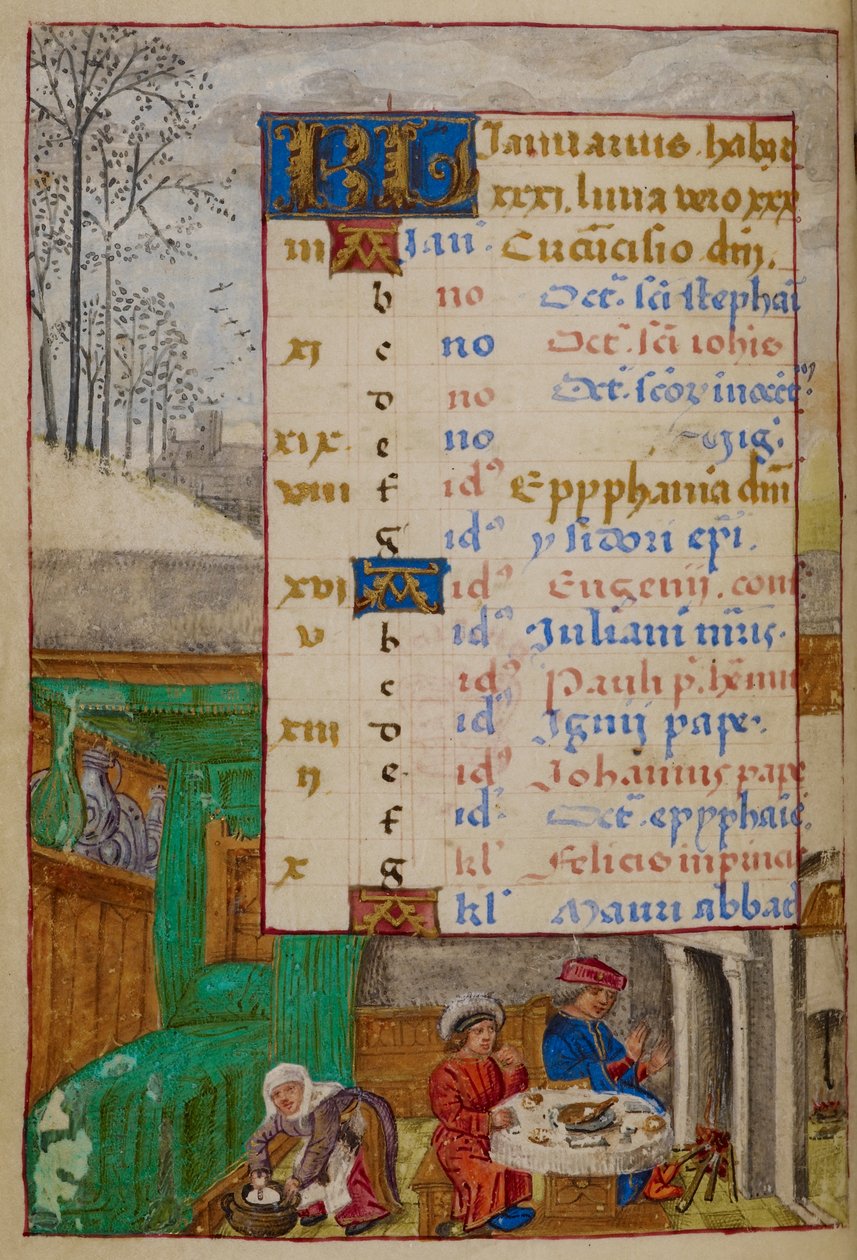 KL Januarius. habet
xxxi. luna vero xxx
iii A Jan⁹. Circu͂cisio dñi.
b no Oct͂. sc͂i stephai͂
xi c no Oct͂. sc͂i iohis
d no Oct͂. sc͂oꝝ inoce͂t⁹
xix. e no Vig⁹.
viii f id⁹ Epyphania dñi
g id⁹ ysidori ep͂i.
xvi A id⁹ Eugenij. conf.
v b id⁹ Juliani m͂ris.
c id⁹ Pauli p͂. h͂emit
xiii d id⁹ Jgnij pape.
ii e id⁹ Johannis pape
f id⁹ Oct͂. epyphaie͂.
x g kl⁹ Felicis in pincis
A kl⁹ Mauri abbat͂